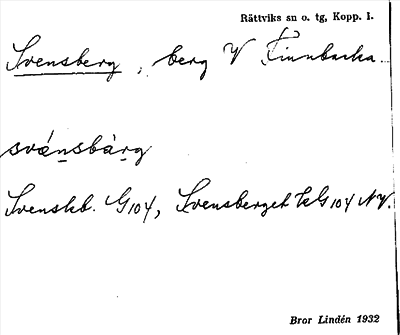 Rättviks sn o. tg, Kopp. l.
Svensberg, berg V Finnbacka
svänsbärg
Svenskb. G104, Svensberget kG104 NV.
Bror Lindén 1932